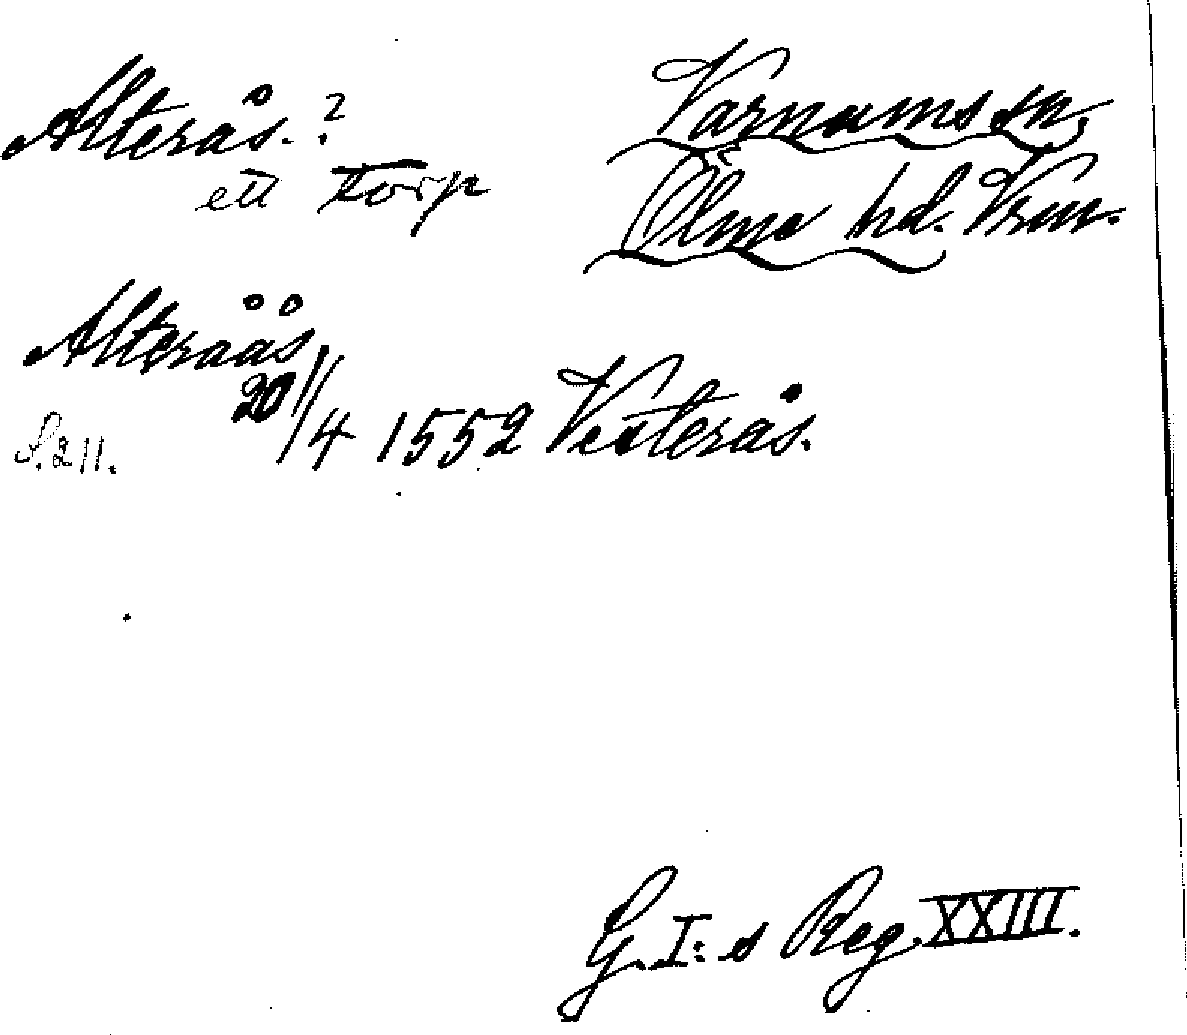 Alterås.?
ett torp
Varnums sn,
Ölme hd. Vrm.
Alteråås
20/4 1552 Vesterås.
S. 211.
G. I: s Reg. XXIII.